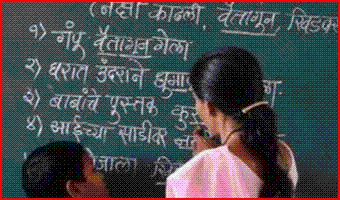 (नक्षा काढली, वैतागून, खिडक
१) गंपू वैतागून गेला
२) घरात उंदराने धुमा
३) बाबांचे पुस्तक कु
४) आईच्या साडीवर